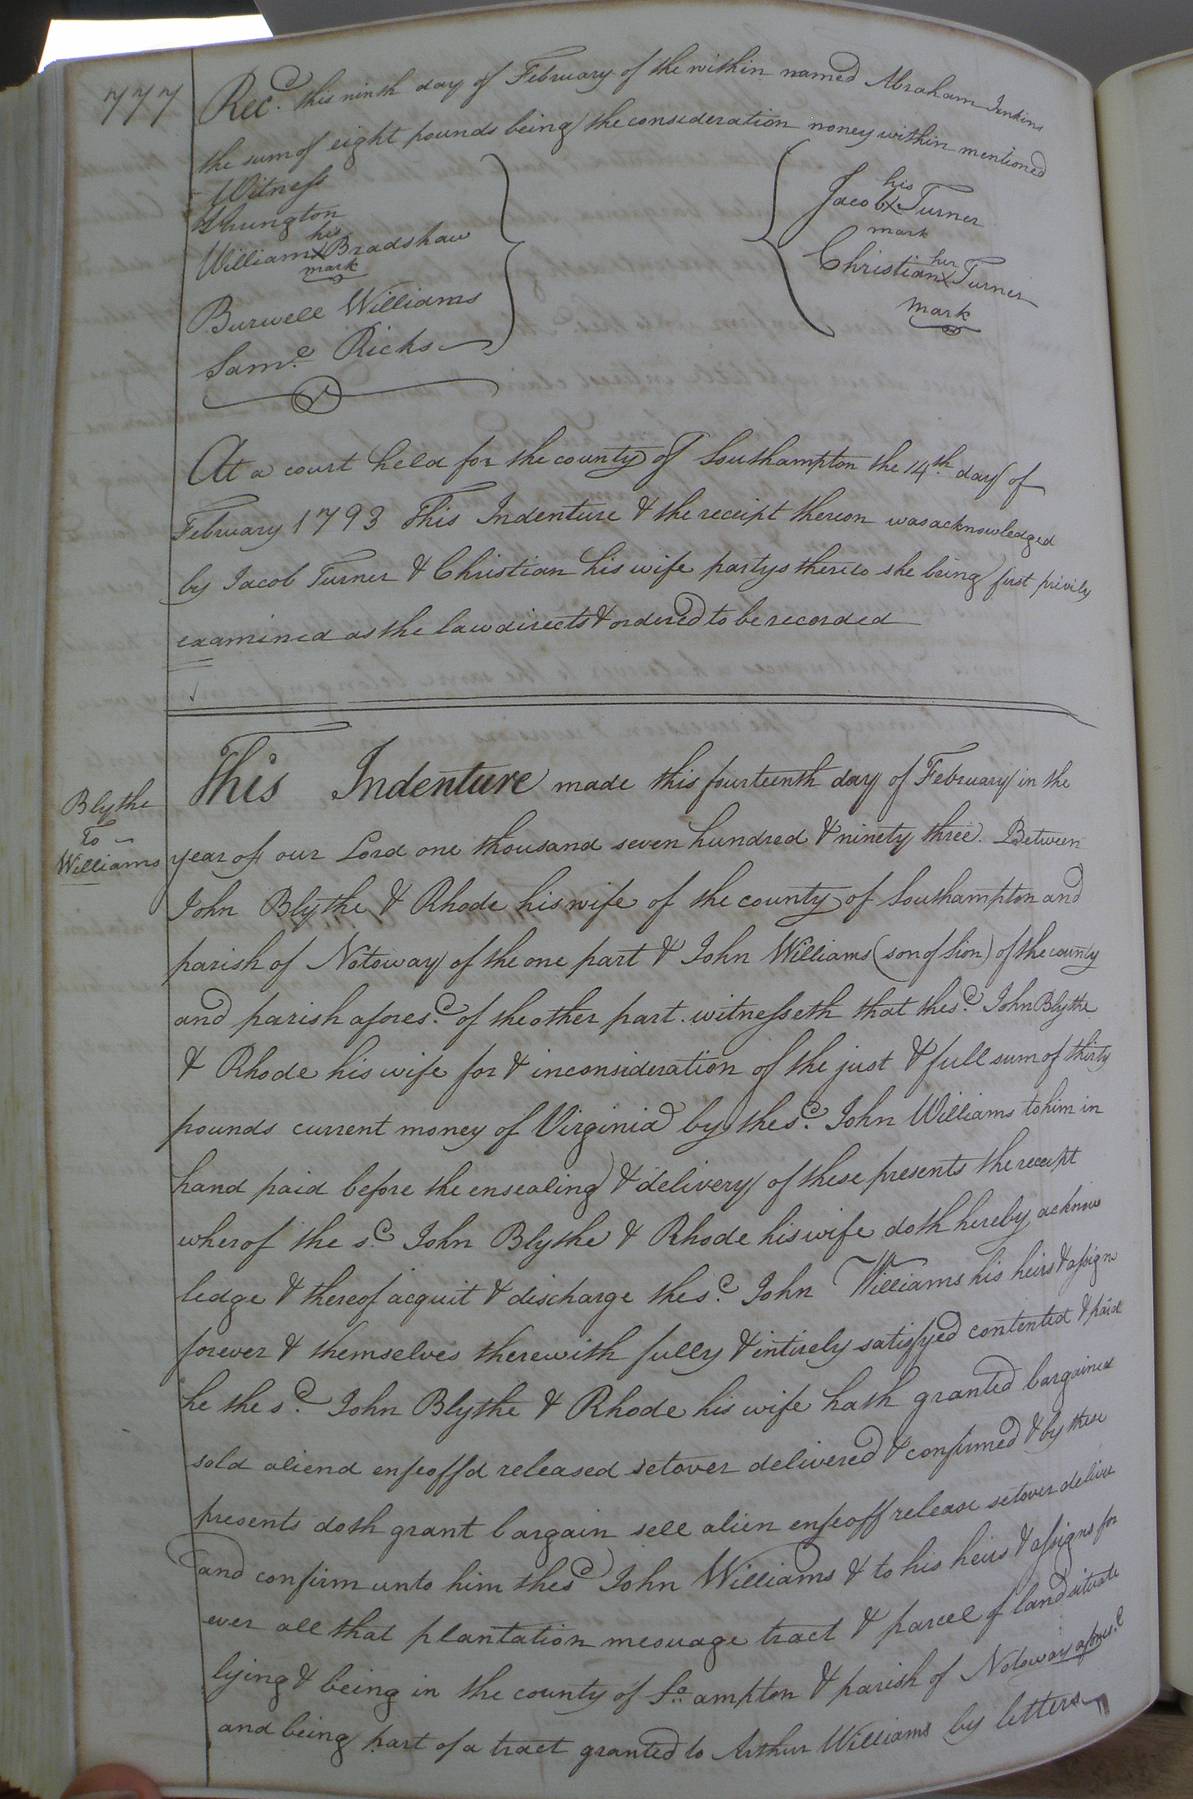 777
Rec.d this ninth day of February of the within named Abraham Jenkins
the sum of eight pounds being the consideration money within mentioned
Witness
his
William X Bradshaw
mark
Burwell Williams
Sam.l Ricks
his
Jacob X Turner
mark
her
Christian X Turner
mark
At a court held for the county of Southampton the 14th day of
February 1793 This Indenture & the receipt thereon was acknowledged
by Jacob Turner & Christian his wife partys thereto she being first privily
examined as the law directs & ordered to be recorded
Blythe
To
Williams
This Indenture made this fourteenth day of February in the
year of our Lord one thousand seven hundred & ninety three. Between
John Blythe & Rhode his wife of the county of Southampton and
parish of Notoway of the one part & John Williams (son of Sion) of the county
and parish afores.d of the other part. witnesseth that the s.d John Blythe
& Rhode his wife for & inconsideration of the just & full sum of thirty
pounds current money of Virginia by the s.d John Williams to him in
hand paid before the ensealing & delivery of these presents the receipt
wherof the s.d John Blythe & Rhode his wife doth hereby acknow
ledge & thereof acquit & discharge the s.d John Williams his heirs & assigns
forever & themselves therewith fully & intirely satisfyed contented & paid
he the s.d John Blythe & Rhode his wife hath granted bargained
sold aliend enfeoffd released setover delivered & confirmed & by these
presents doth grant bargain sell alien enfeoff release setover deliver
and confirm unto him the s.d John Williams & to his heirs & assigns for
ever all that plantation mesuage tract & parcel of land situate
lying & being in the county of So ampton & parish of Notoway afores.d
and being part of a tract granted to Arthur Williams by letters